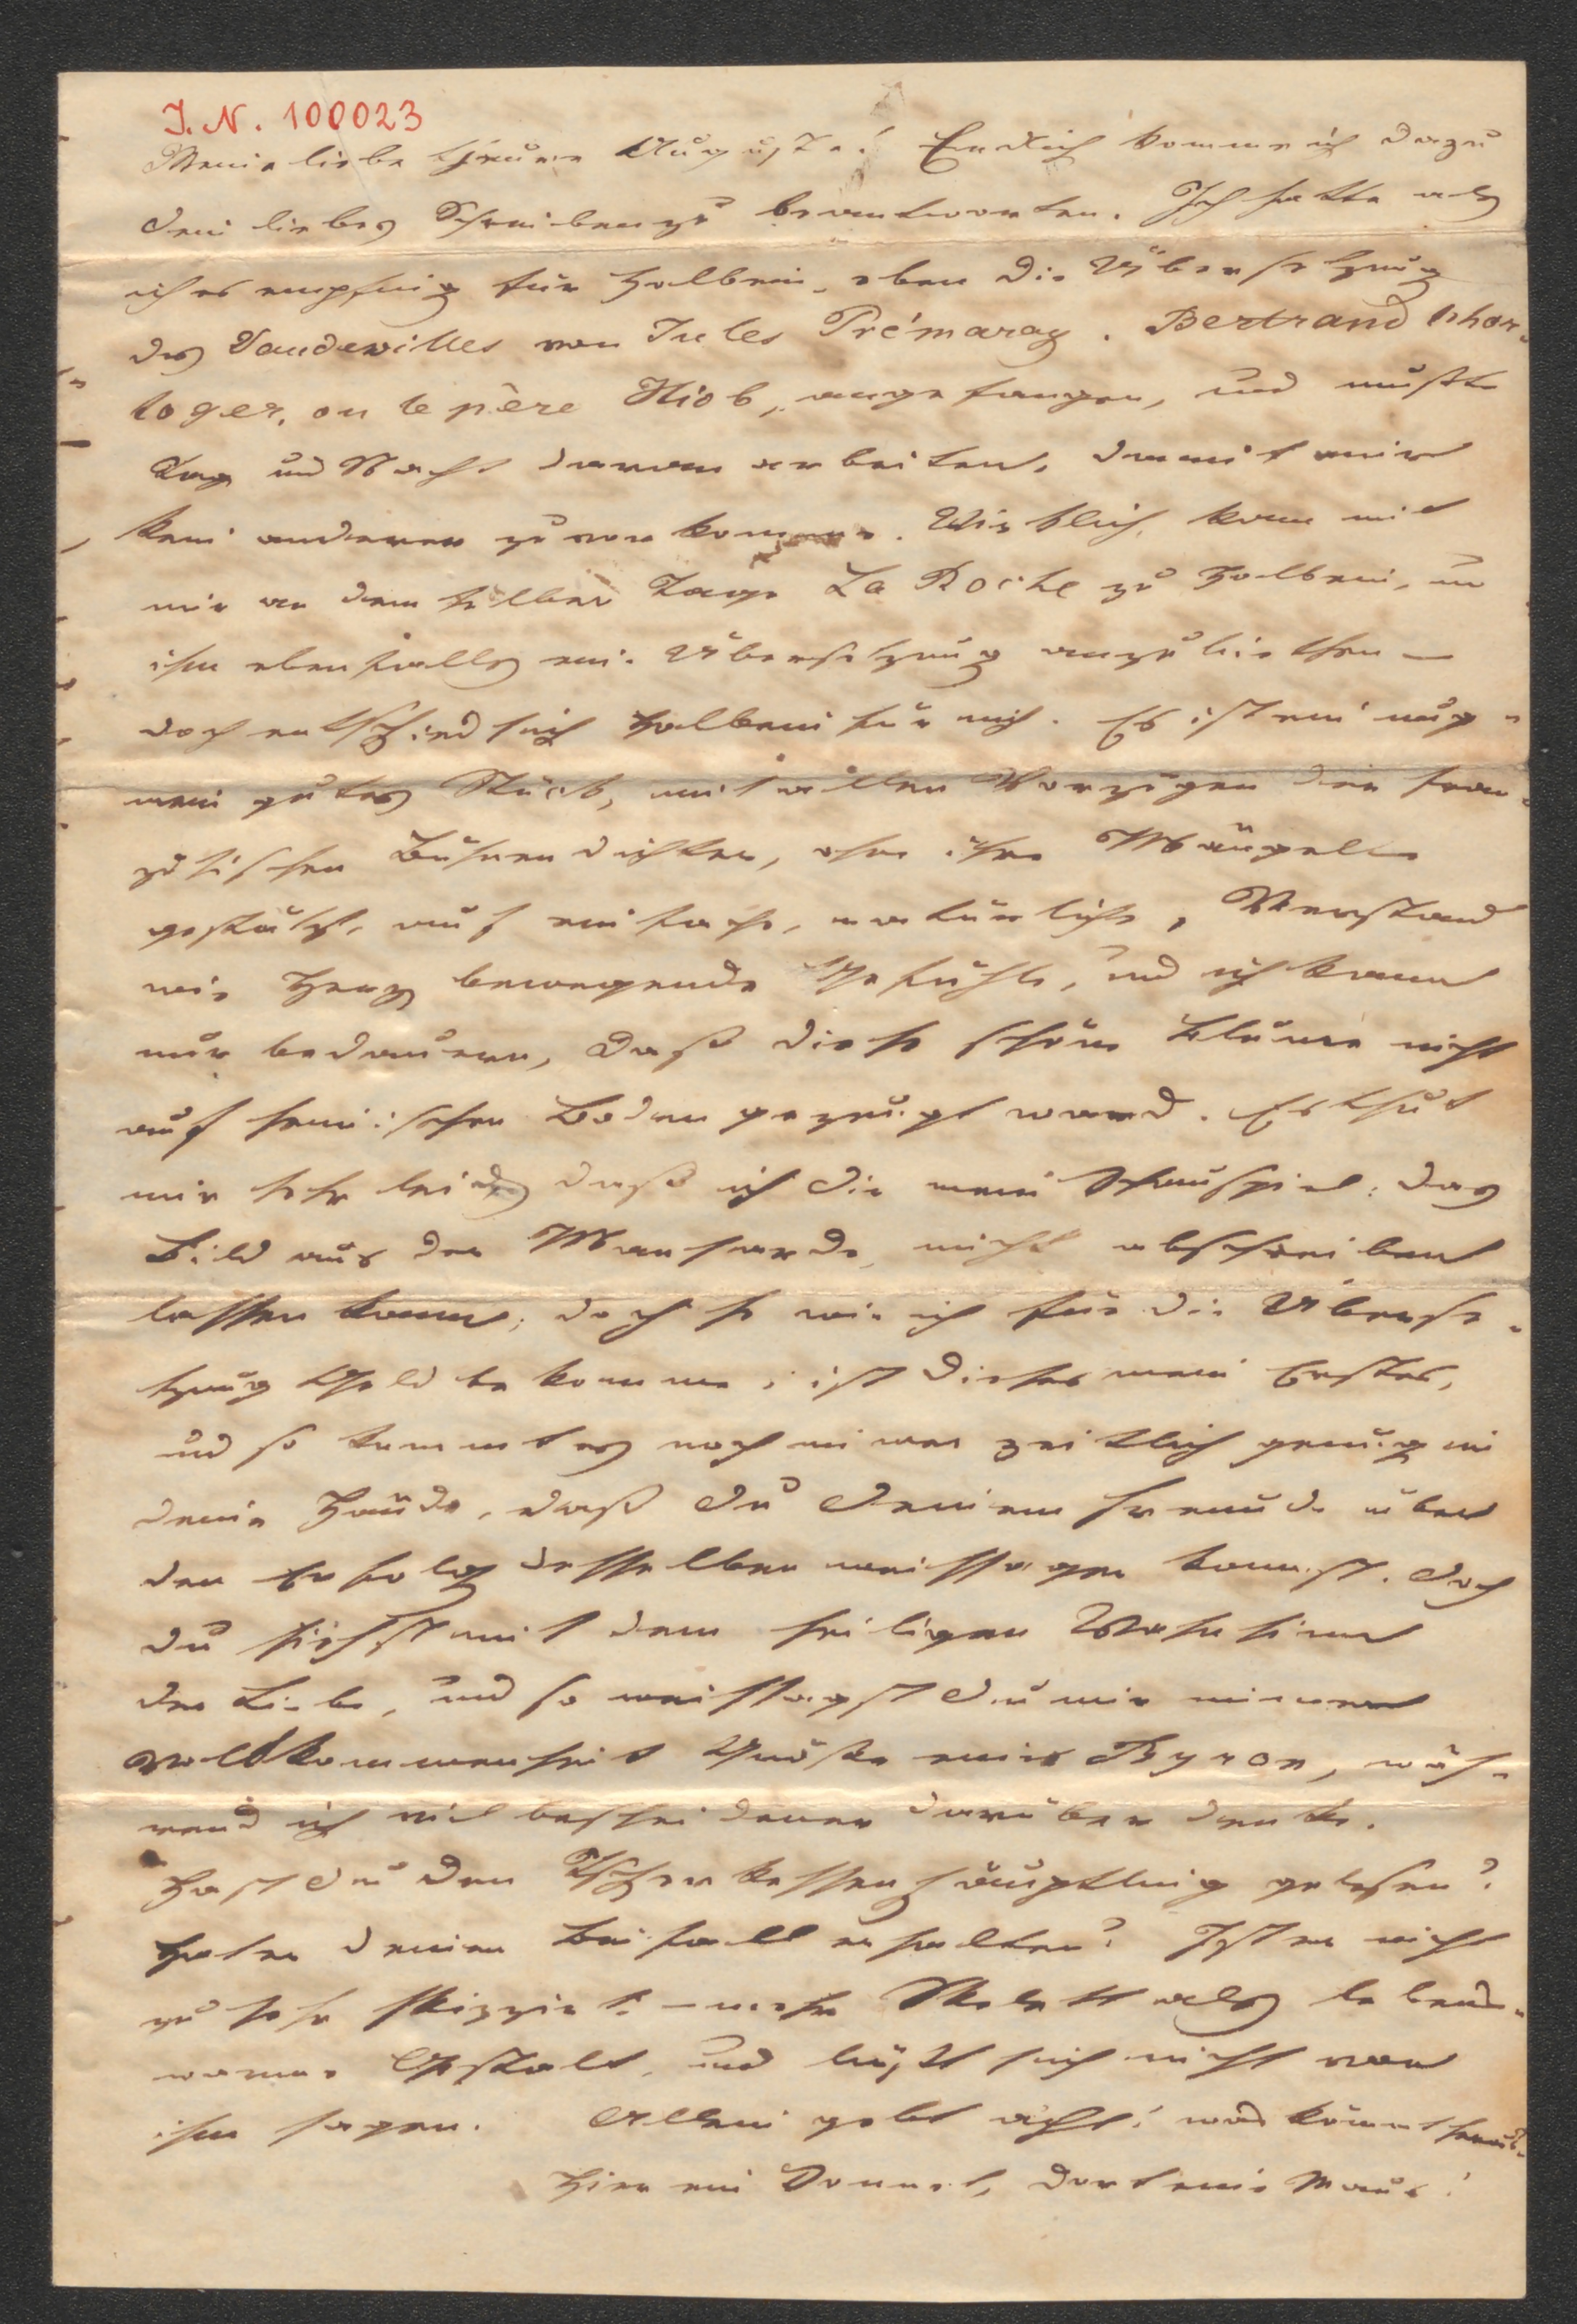 J. N. 100023
Meine liebe theure Auguste! Endlich komme ich dazu
dein liebes Schreiben zu beantworten. Ich hatte als
ich es empfing für Holbein, eben die Übersetzung
des Vaudevilles von Jules Prémaray. Bertrand l'hor-
loger, ou le père Hiob, angefangen, und mußte
Tag und Nacht daran arbeiten, damit mir
kein anderer zuvor komme. Wirklich, kam mit
mir an dem selben Tage La Roche zu Holbein, um
ihm ebenfalls eine Übersetzung anzubiethen —
doch entschied sich Holbein für mich. Es ist ein unge-
mein gutes Stück, mit allen Vorzügen der fran-
zösischen Bühnendichter, ohne ihre Mängel
gestützt, auf einfache, natürliche, Verstand
wie Herz bewegende Gefühle, und ich kann
nur bedauern, daß diese schöne Blume nicht
auf heimischen Boden gezeugt ward. Es thut
mir sehr leid daß ich dir mein Schauspiel: das
Bild aus der Mansarde, nicht abschreiben
lassen kann; doch so wie ich für die Überse-
tzung Geld bekomme, ist dieses mein Erstes,
und so kommt es noch immer zeitlich genug in
deine Hände, daß du deinem Freunde über
den Erfolg desselben weissagen kannst. doch
du siehst mit dem heiligen Wahnsinn
der Liebe, und so weissagst du mir immer
Vollkommenheit Größe eines Byron, wäh-
rend ich viel bescheidener darüber denke.
Hast du den Tscherkessenhäuptling gelesen?
Hat er deinen Beifall erhalten? Ist er nicht
zu sehr skizzirt — mehr Skelett als lebens-
warme Gestalt, und läßt sich nicht von
ihm sagen. Allein gebt acht! was kömmt heraus.
Hier ein Sonnet, dort eine Maus!